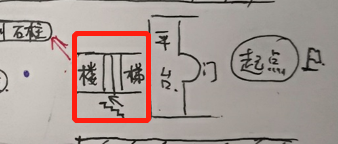 石柱
楼梯
平台
门
起点